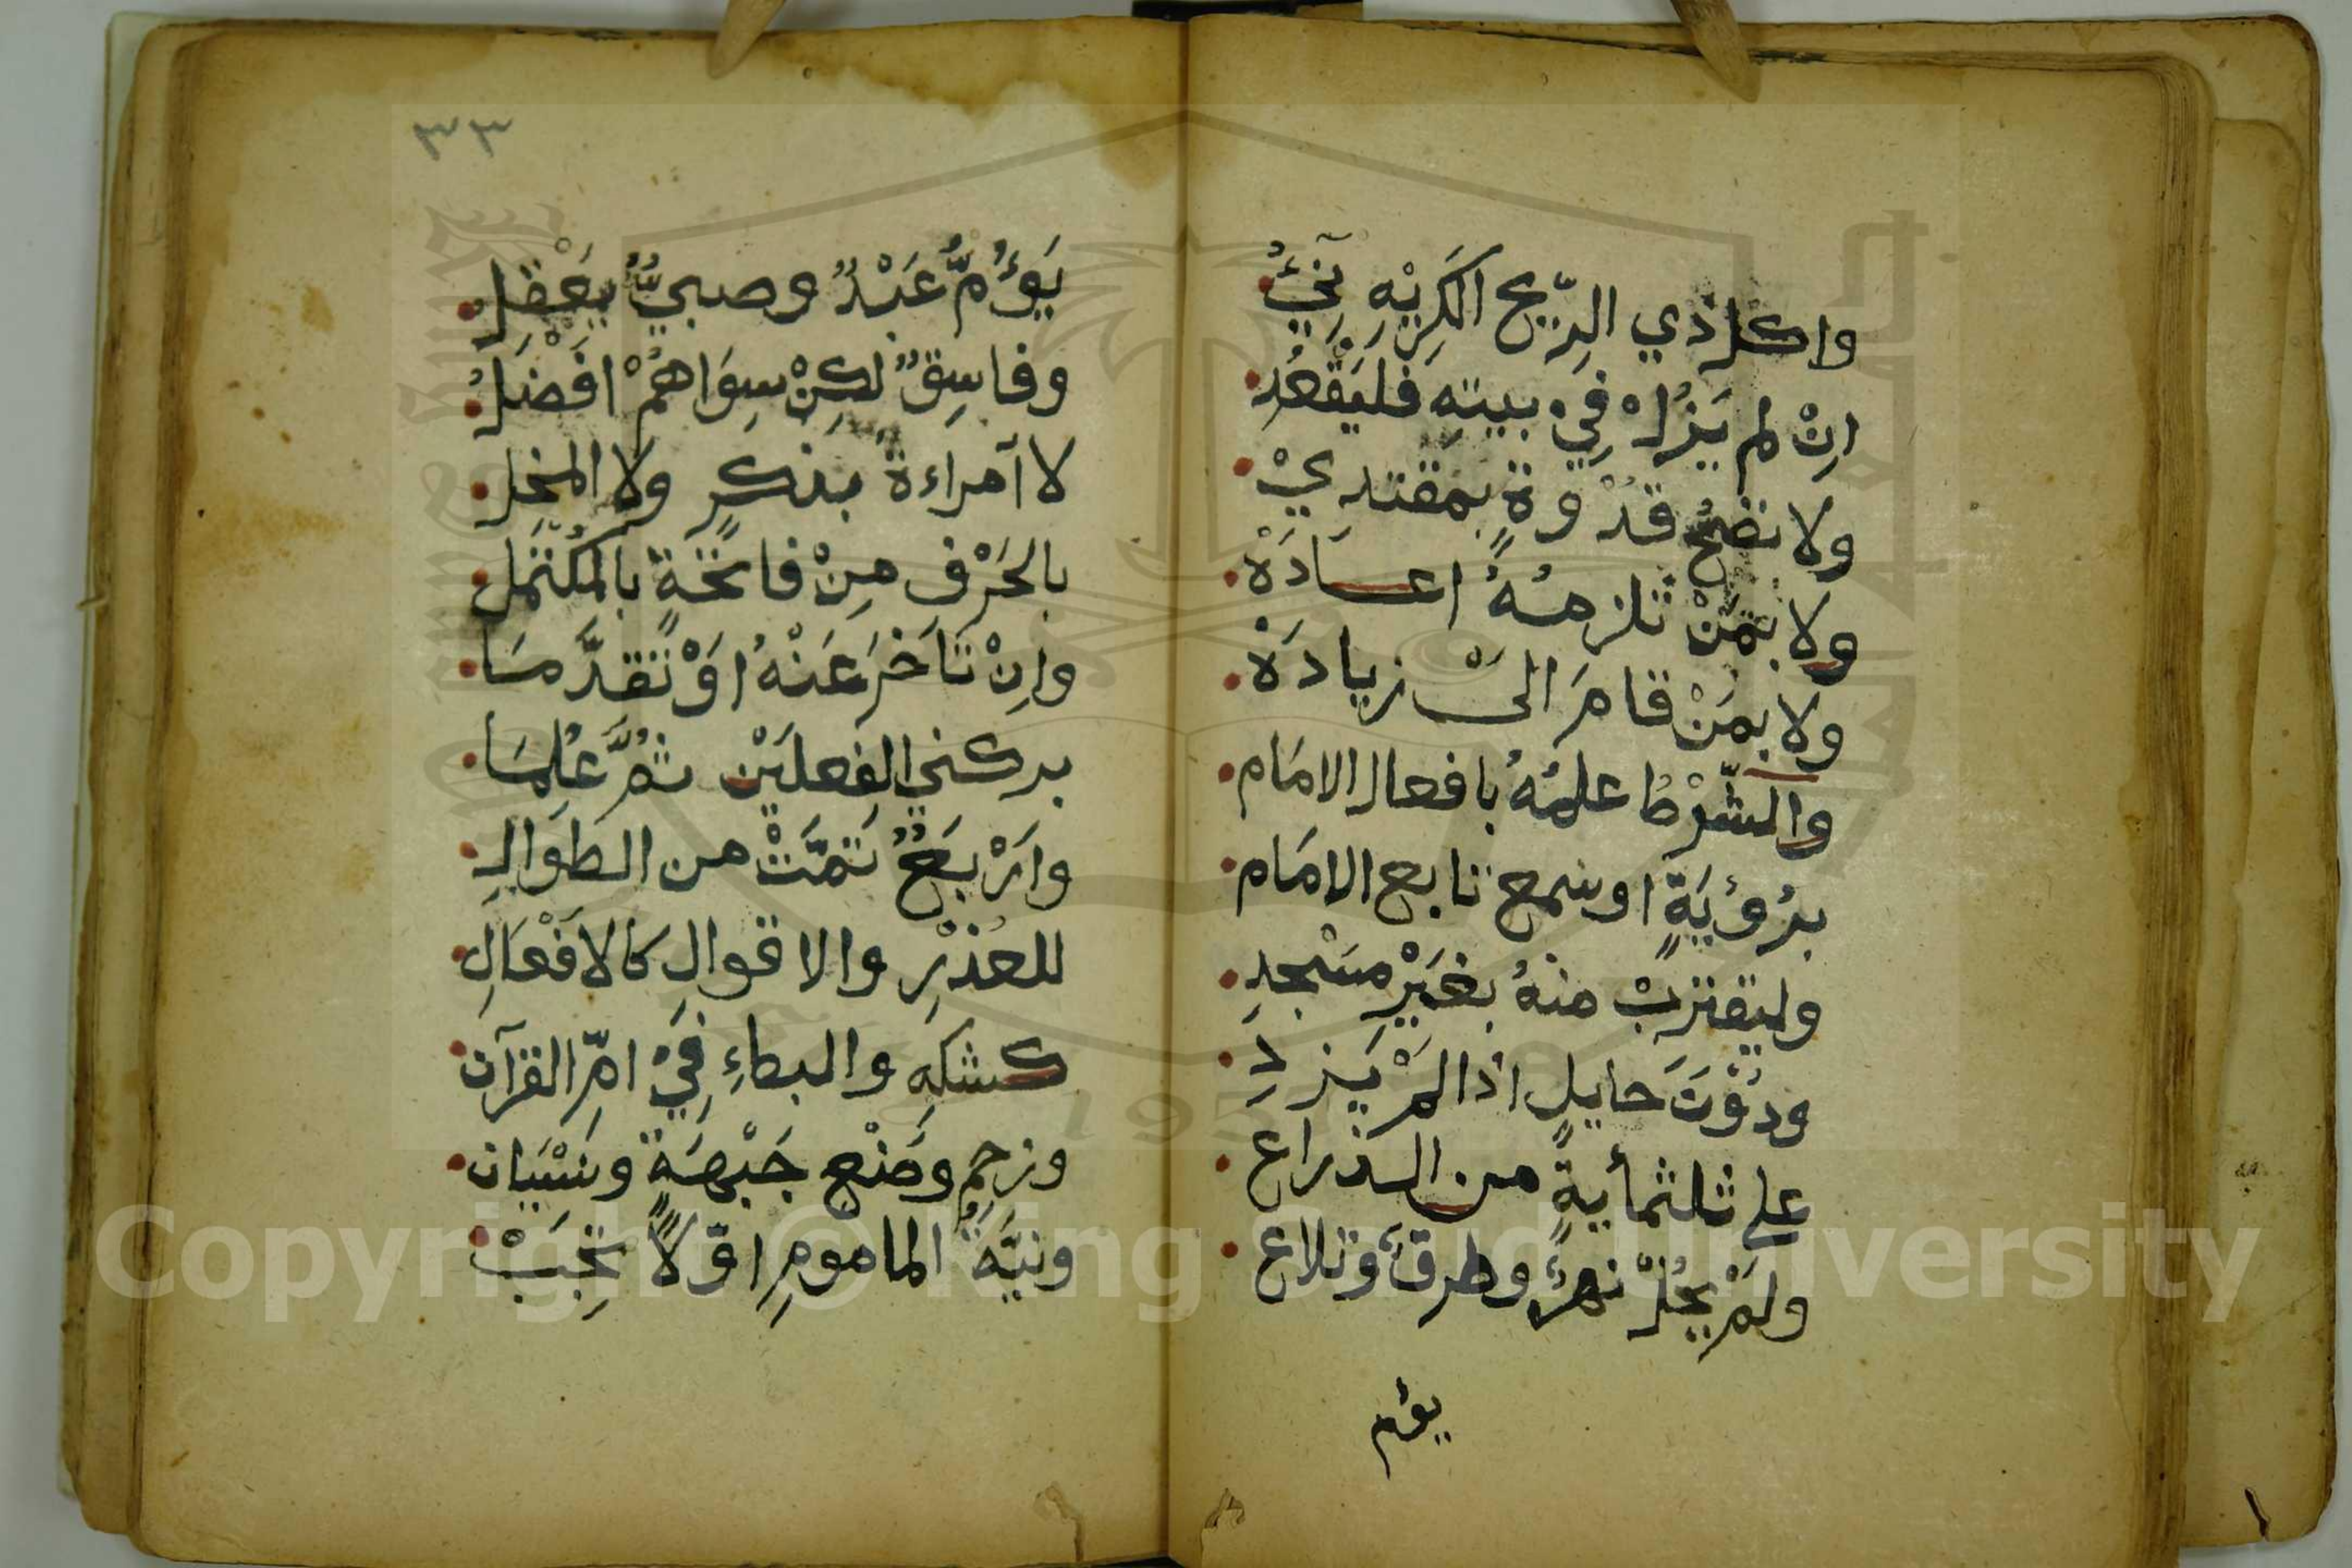 واكل ذي الرّيح الكَرِيْهِ نِيّ
اِنْ لم يَزُلْ فِيْ بيتهِ فليَقْعُدِ
ولا تصحُّ قدْوةٌ بمقتديْ
ولا بمَنْ تلزمهُ اعادَهْ
ولا بمَنْ قامَ الىْ زيادَهْ
والشّرْطُ علمُهُ بافعال الامَام
برُؤْيَةٍ او سمع تابع الامَام
وليقتربْ منهُ بغَيْرِ مسْجدِ
ودُوْنَ حايلٍ اذا لمْ يَزِدِ
على ثلثمأيةٍ من الذراع
ولَمْ يحُلْ نهرٌ وطرقٌ وتلاع
يؤم
٣٣
يَؤُمُّ عَبْدٌ وصبيٌّ يعْقِلُ
وفاسِقٌ لكِنْ سِوَاهُمْ افْضَلُ
لا امراءةٌ بذكرٍ ولا المخِل
بالحَرْفِ مِنْ فاتحَةٍ بالمكْتَمل
وانْ تَاَخرَ عَنْهُ اوْ تَقدَّمَا
بركني الفعلَيْن ثمَّ عَلِمَا
وارْبعٌ تمَّتْ من الطوَالِ
للعُذْرِ والاقوالِ كالافْعَالِ
كشكهِ والبطاءِ فِيْ امِّ القرآن
وزحمِ وضْعِ جَبْهَةٍ ونسْيَان
ونيّةُ المامومِ اوّلاً تجِبْ
Copyright © King Saud University